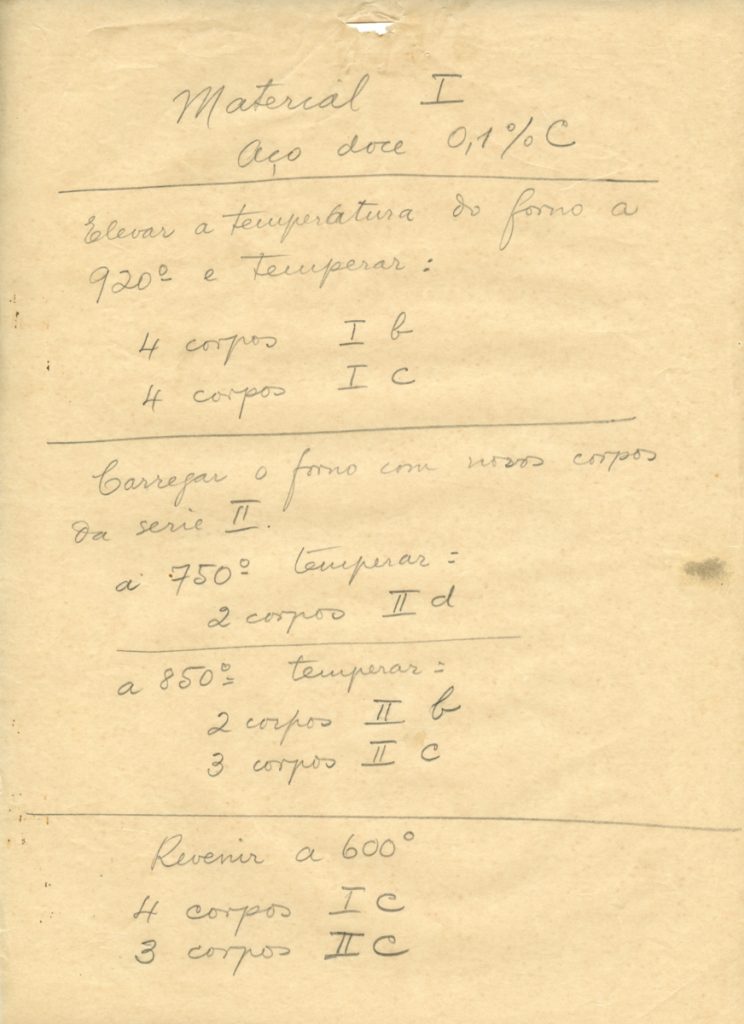 Material I
Aço doce 0,1% C
Elevar a temperatura do forno a
920º e temperar:
4 corpos I b
4 corpos I c
Carregar o forno com novos corpos
da serie II.
a 750º temperar:
2 corpos II d
a 850º temperar:
2 corpos II b
3 corpos II c
Revenir a 600°
4 corpos I c
3 corpos II c